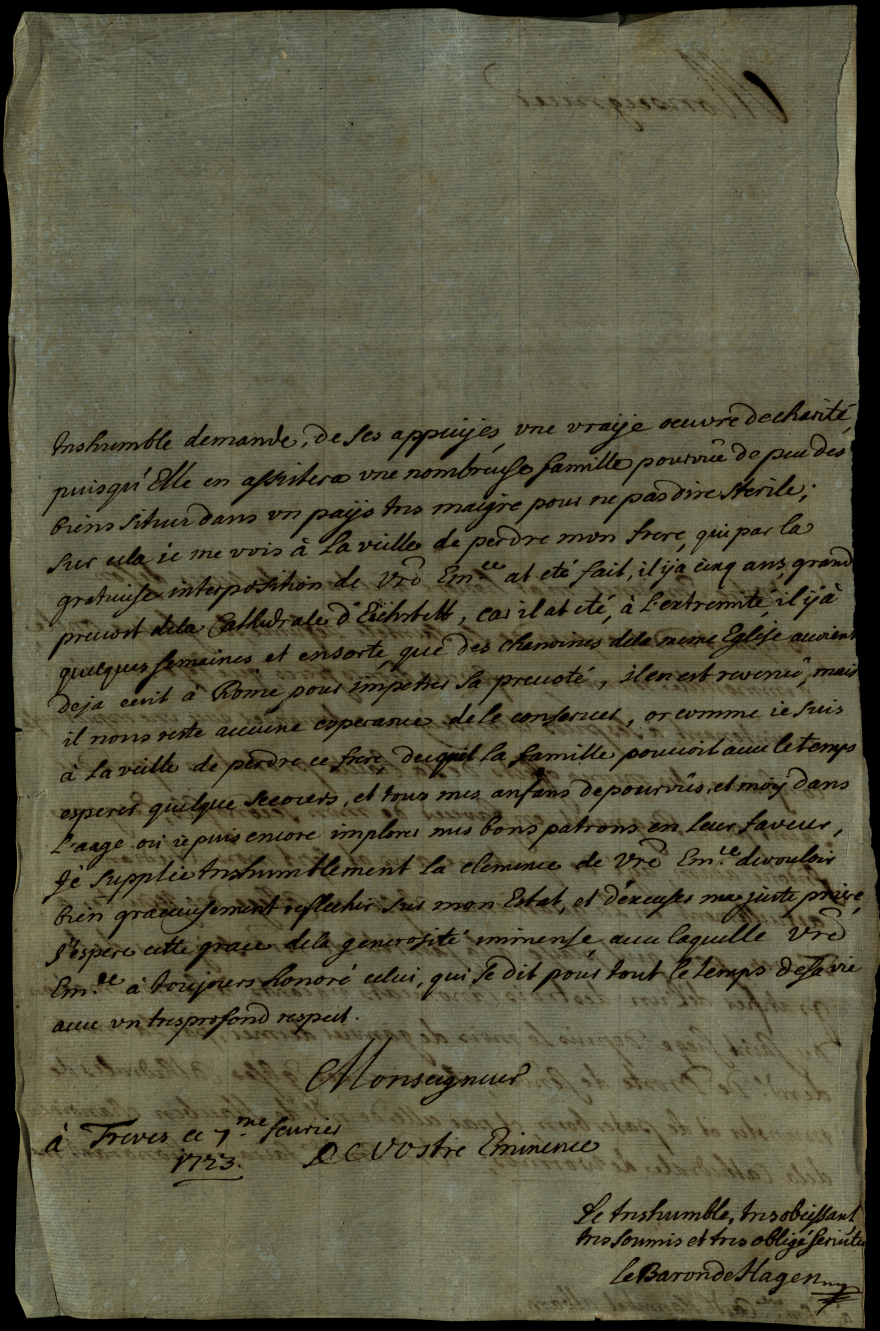 treshumble demande, de ses appuijés, une vraije oeuvre de charité,
puisqu'Elle en assistera une nombreuse famille pourvüe de peu des
biens situez dans un païjs tres maigre pour ne pas dire sterile;
sur cela ie me vois à la veille de perdre mon frere, qui par la
gratieuse interposition de Vrē Em.ce at eté fait, il ijà cinq ans, grand
prevost dela Cathedrale d'Eichstett, car il at eté, à l'extremité, il ijà
quelques semaines et ensorte, que des chenoines dela meme Eglise avoient
deja ecrit à Rome pour impetrer sa prevoté, il en est revenü, mais
il nous reste aucune esperance de le conserver, or comme ie suis
à la veille de perdre ce frere, duquel la famille pouvoit avec le temps
esperer quelque secours, et tous mes anfans depourvüs, et moij dans
l'aage où ie puis encore implorer mes bons patrons en leur faveur,
Je supplie treshumblement la clemence de Vrē Em.ce de vouloir
bien gracieusement reflechir sur mon Estat, et d'excuser ma juste priere,
J'espere cette grace dela generosité immense avec laquelle Vrē
Em.ce à toujours honoré celui, qui se dit pour tout le temps de sa vie
avec un tresprofond respect.
Monseigneur
à Treves ce 7.me fevrier
1723.
De Vostre Eminence
Le treshumble, tres obeissant
tres soumis et tres obligé serviteu
le Baron de Hagen